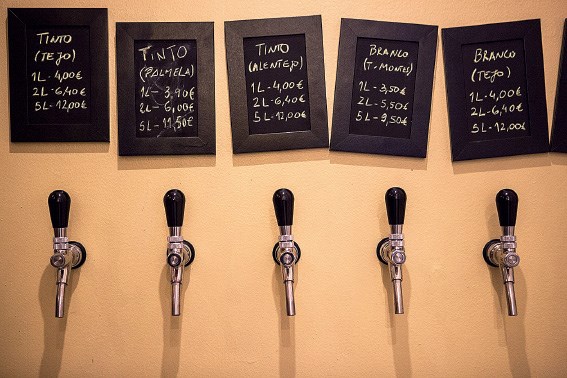 TINTO
(TEJO)
1L - 4,00€
2L - 6,40€
5L - 12,00€
TINTO
(PALMELA)
1L - 3,90€
2L - 6,00€
5L - 11,50€
TINTO
(ALENTEJO)
1L - 4,00€
2L - 6,40€
5L - 12,00€
BRANCO
(T-MONTES)
1L - 3,50€
2L - 5,50€
5L - 9,50€
BRANCO
(TEJO)
1L - 4,00€
2L - 6,40€
5L - 12,00€